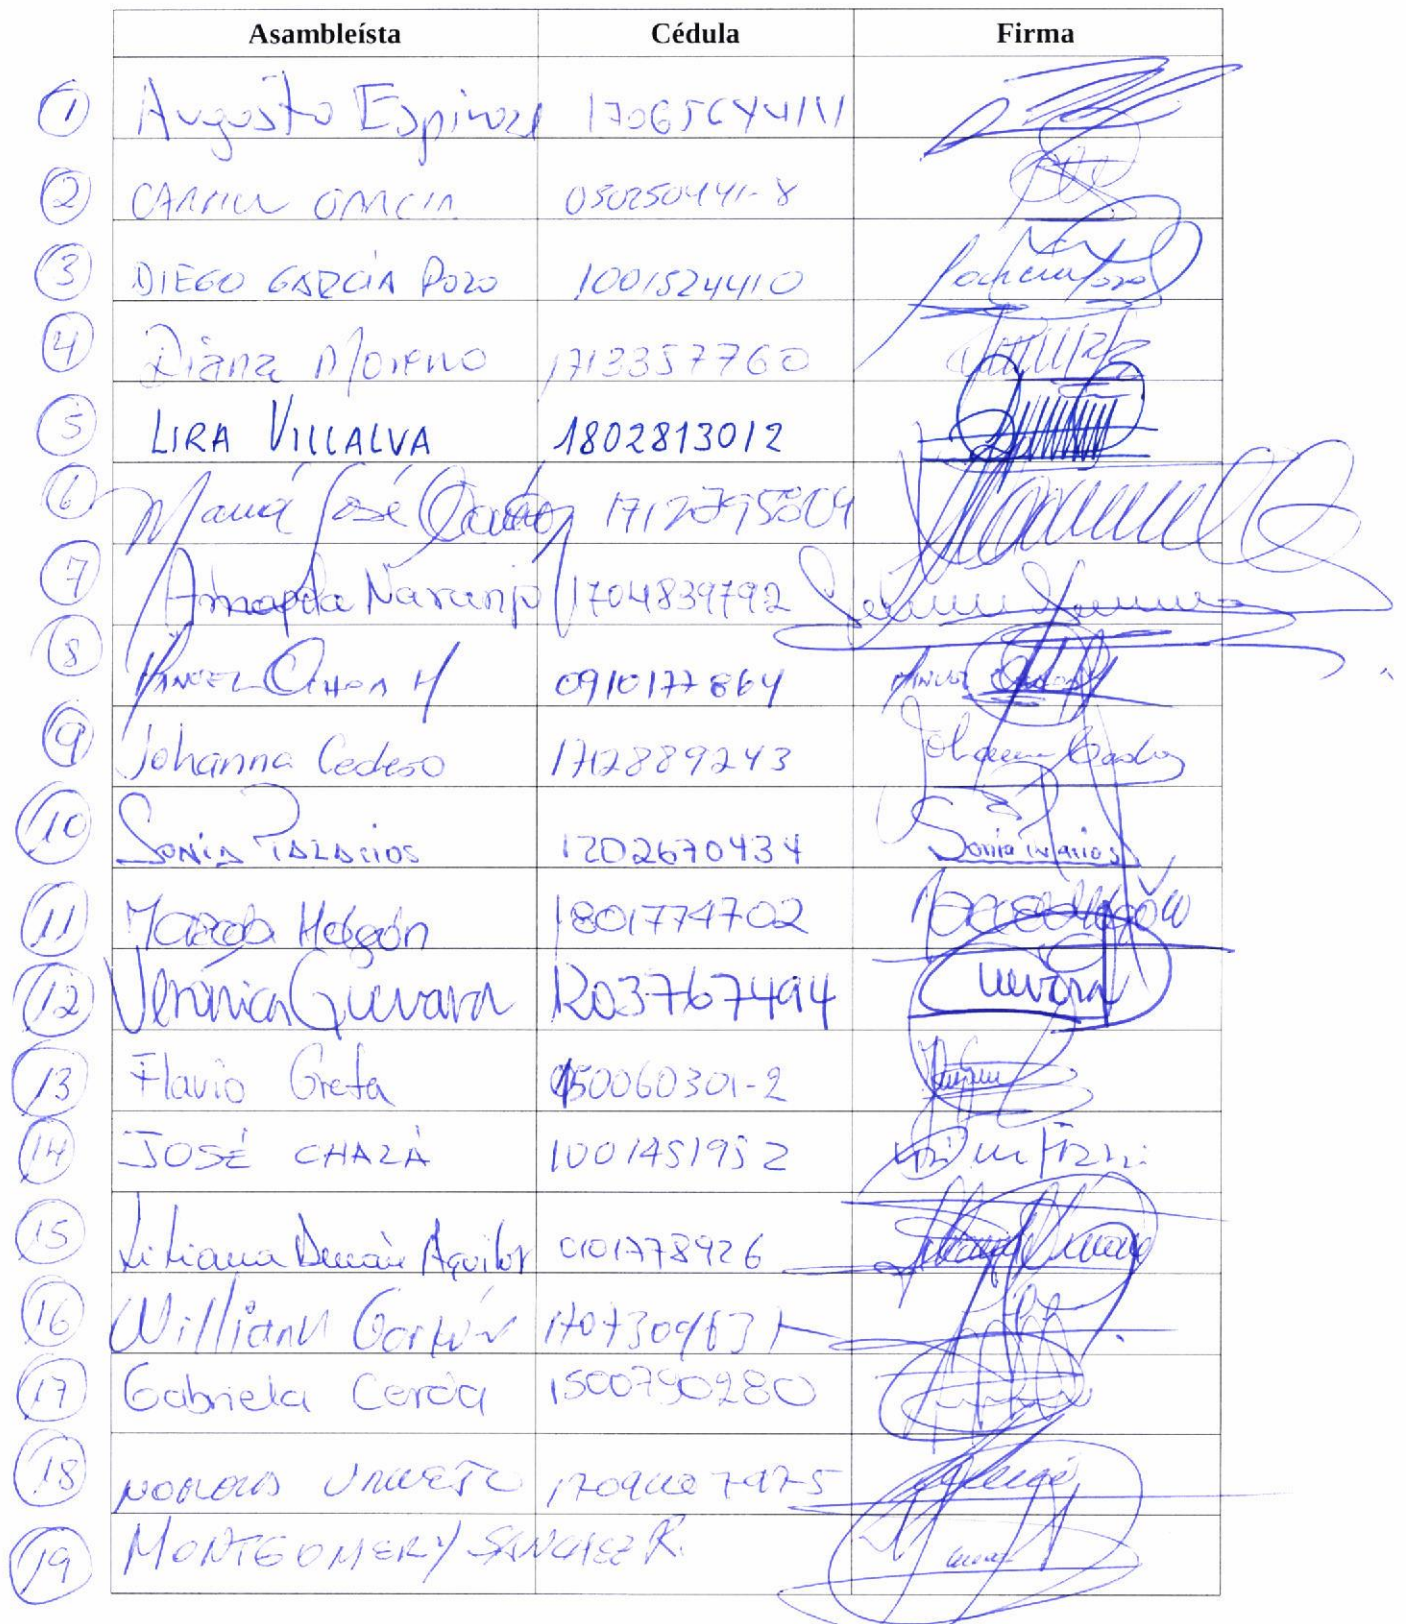 Asambleísta Cédula Firma
1 Augusto Espinoza
2 GARCIA 050250441-8
3 DIEGO GARCÍA POZO 1001524410
4 Diana Moreno 1713357760
5 LIRA VILLALVA 1802813012
6 María José
7 Amapola Naranjo 1704839792
8 OCHOA H 0910177864
9 Johanna Cedeño 1712889243
10 Sonia PALACIOS 1202670434 Sonia Palacios
11 Holguín 1801774702
12 Verónica Guevara 1203767494
13 Flavio Grefa 150060301-2
14 JOSÉ CHALÁ 1001451952
15 Liliana Durán Aguilar 0101778926
16 William Garzón
17 Gabriela Cerda 1500790280
18
19 MONTGOMERY SÁNCHEZ R.